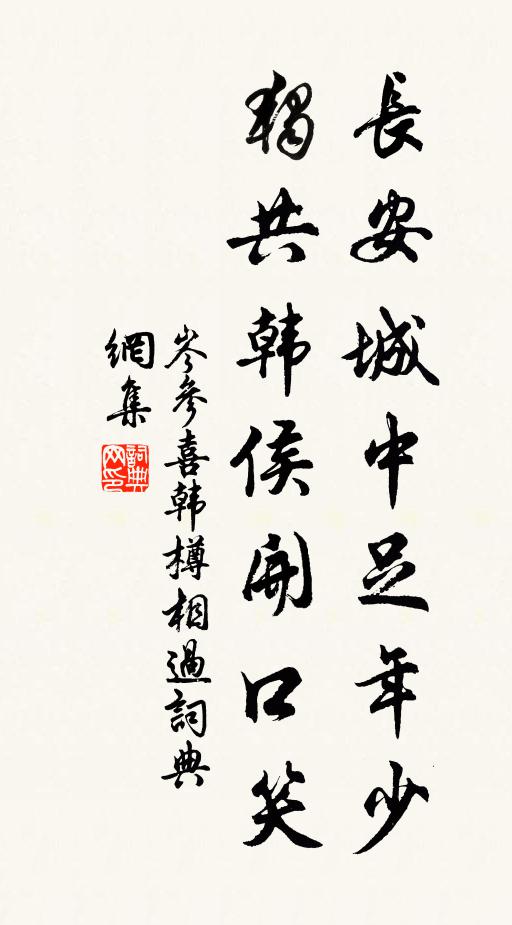 長安城中足年少
獨共韩侯開口笑
岑參喜韩樽相過詞典
網集
詞典
网印